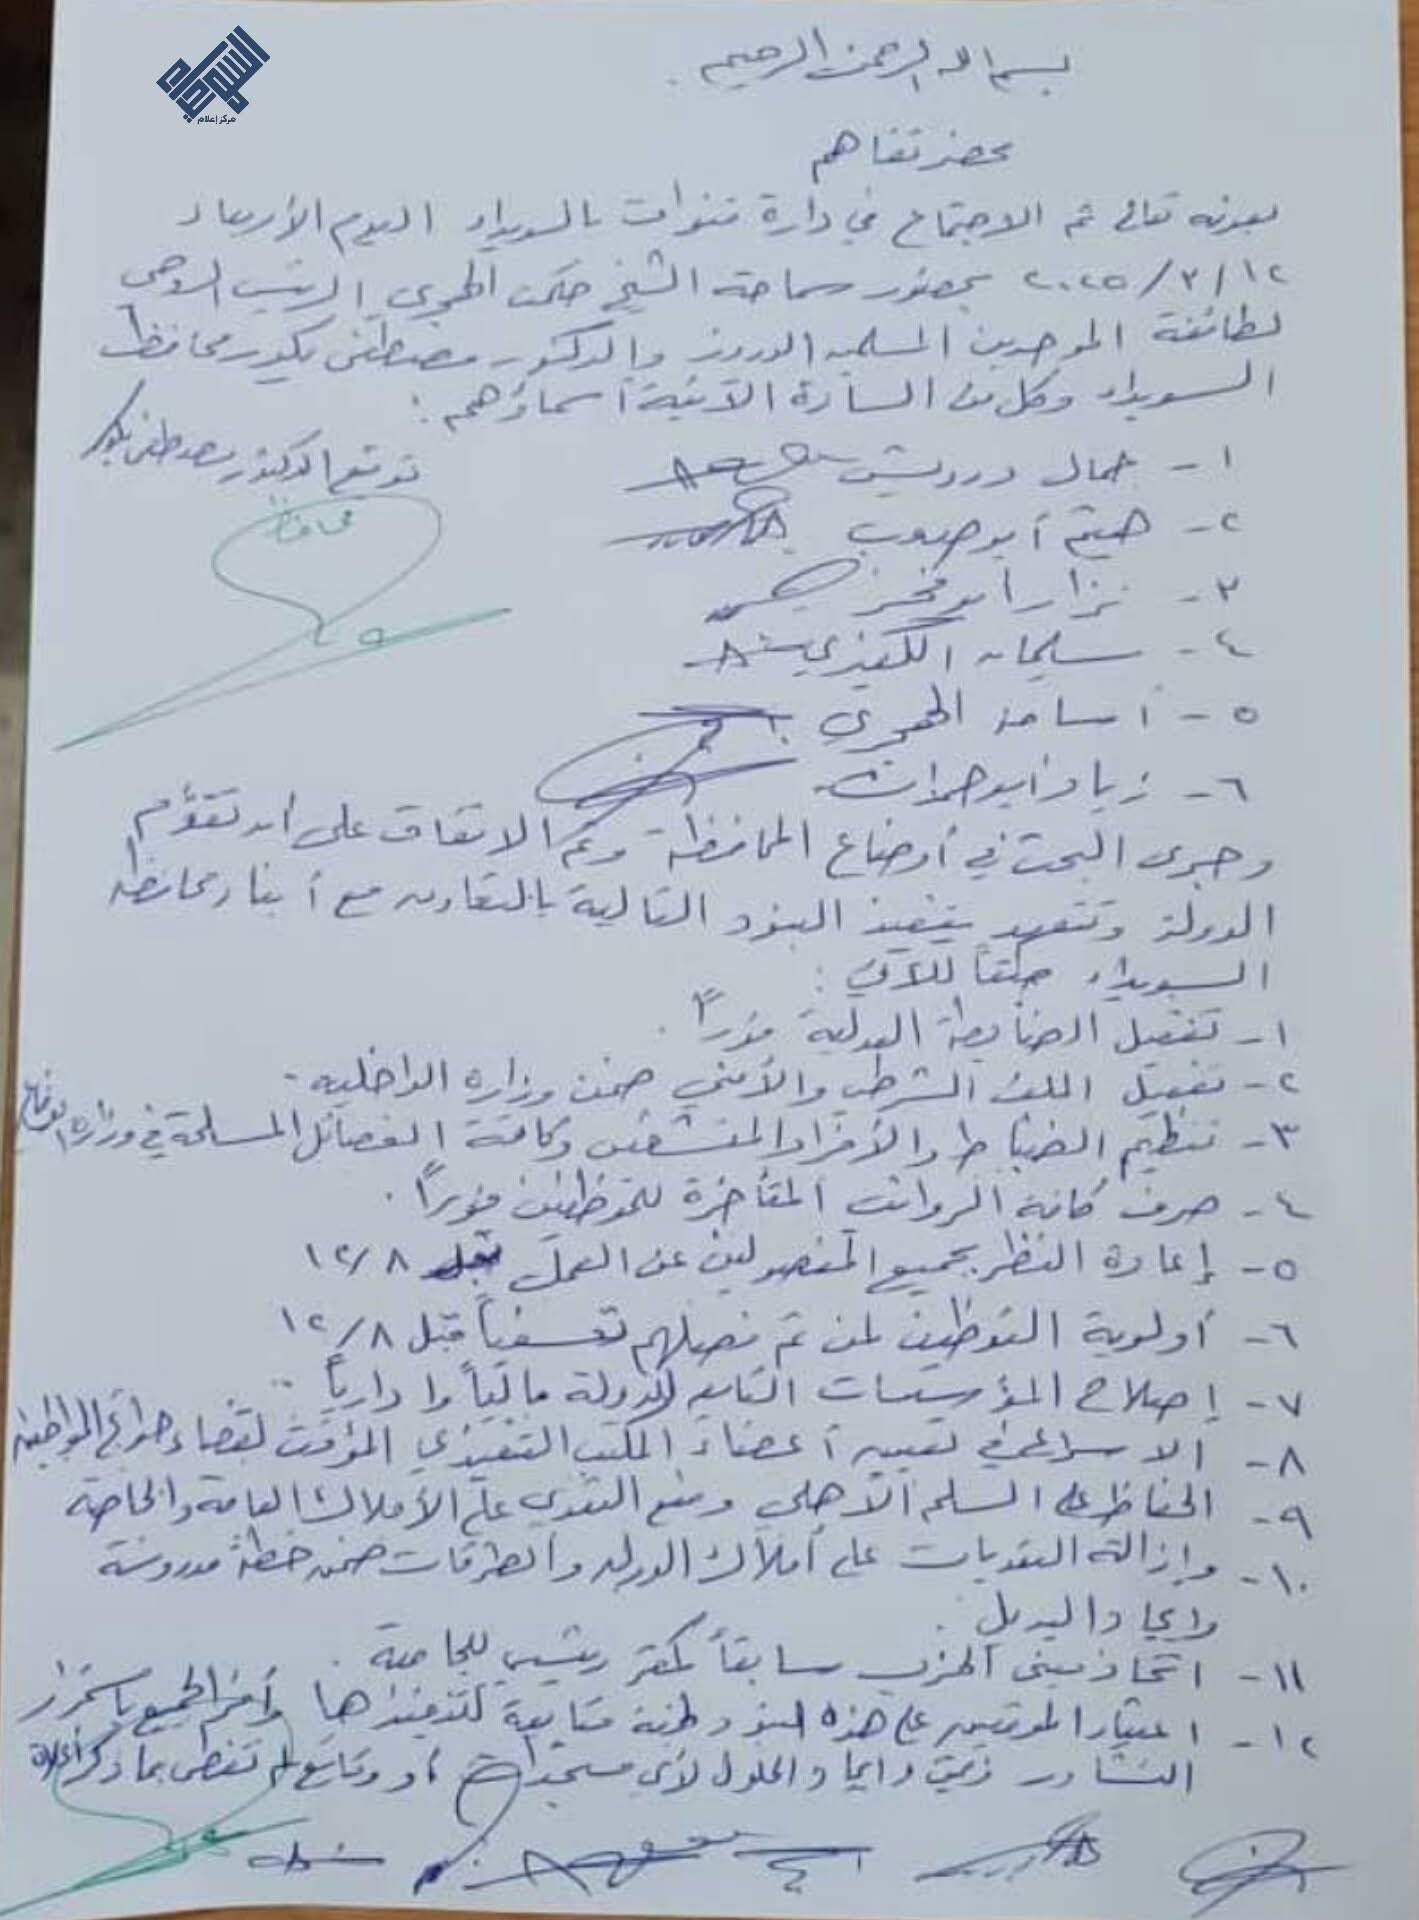 السويداء
مركز إعلام
بسم الله الرحمن الرحيم
محضر تفاهم
بعونه تعالى تم الاجتماع في دارة قنوات بالسويداء اليوم الأربعاء
١٢/٣/٢٠٢٥ بحضور سماحة الشيخ حكمت الهجري الرئيس الروحي
لطائفة الموحدين المسلمين الدروز والدكتور مصطفى بكور محافظ
السويداء وكل من السادة الآتية أسماؤهم :
توقيع الدكتور مصطفى بكور
محافظ
١- جمال درويش
٢- هيثم أبو صعب
٣- نزار أبو فخر
٤- سليمان الكفيري
٥- أسامة الهجري
٦- زياد أبو حمدان
وجرى البحث في أوضاع المحافظة وتم الاتفاق على أن تقوم
الدولة وتتعهد بتنفيذ البنود التالية بالتعاون مع أبناء محافظة
السويداء للآتي :
١- تفعيل الضابطة العدلية فوراً .
٢- تفعيل الملف الشرطي والأمني ضمن وزارة الداخلية .
٣- تنظيم الضباط والأفراد المنشقين وكافة الفصائل المسلحة في وزارة الدفاع
٤- صرف كافة الرواتب المتأخرة للموظفين فوراً .
٥- إعادة النظر بجميع المفصولين عن العمل قبل ١٢/٨
٦- أولوية التوظيف لمن تم فصلهم تعسفياً قبل ١٢/٨
٧- إصلاح المؤسسات التابعة للدولة مالياً وادارياً .
٨- الاسراع في تعيين أعضاء المكتب التنفيذي المؤقت لقضاء حوائج المواطنين
٩- الحفاظ على السلم الأهلي ومنع التعدي على الأملاك العامة والخاصة
١٠- وإزالة التعديات على أملاك الدولة والطرقات ضمن خطة مدروسة
وايجاد البديل .
١١- اتخاذ مبنى الحزب سابقاً كمقر رئيسي للجامعة .
١٢- اعتبار الموقعين على هذه البنود لجنة متابعة لتنفيذها وأقر الجميع باستمرار
التشاور وايجاد الحلول لأي مستجدات أو وقائع تقضي بما ذكر أعلاه